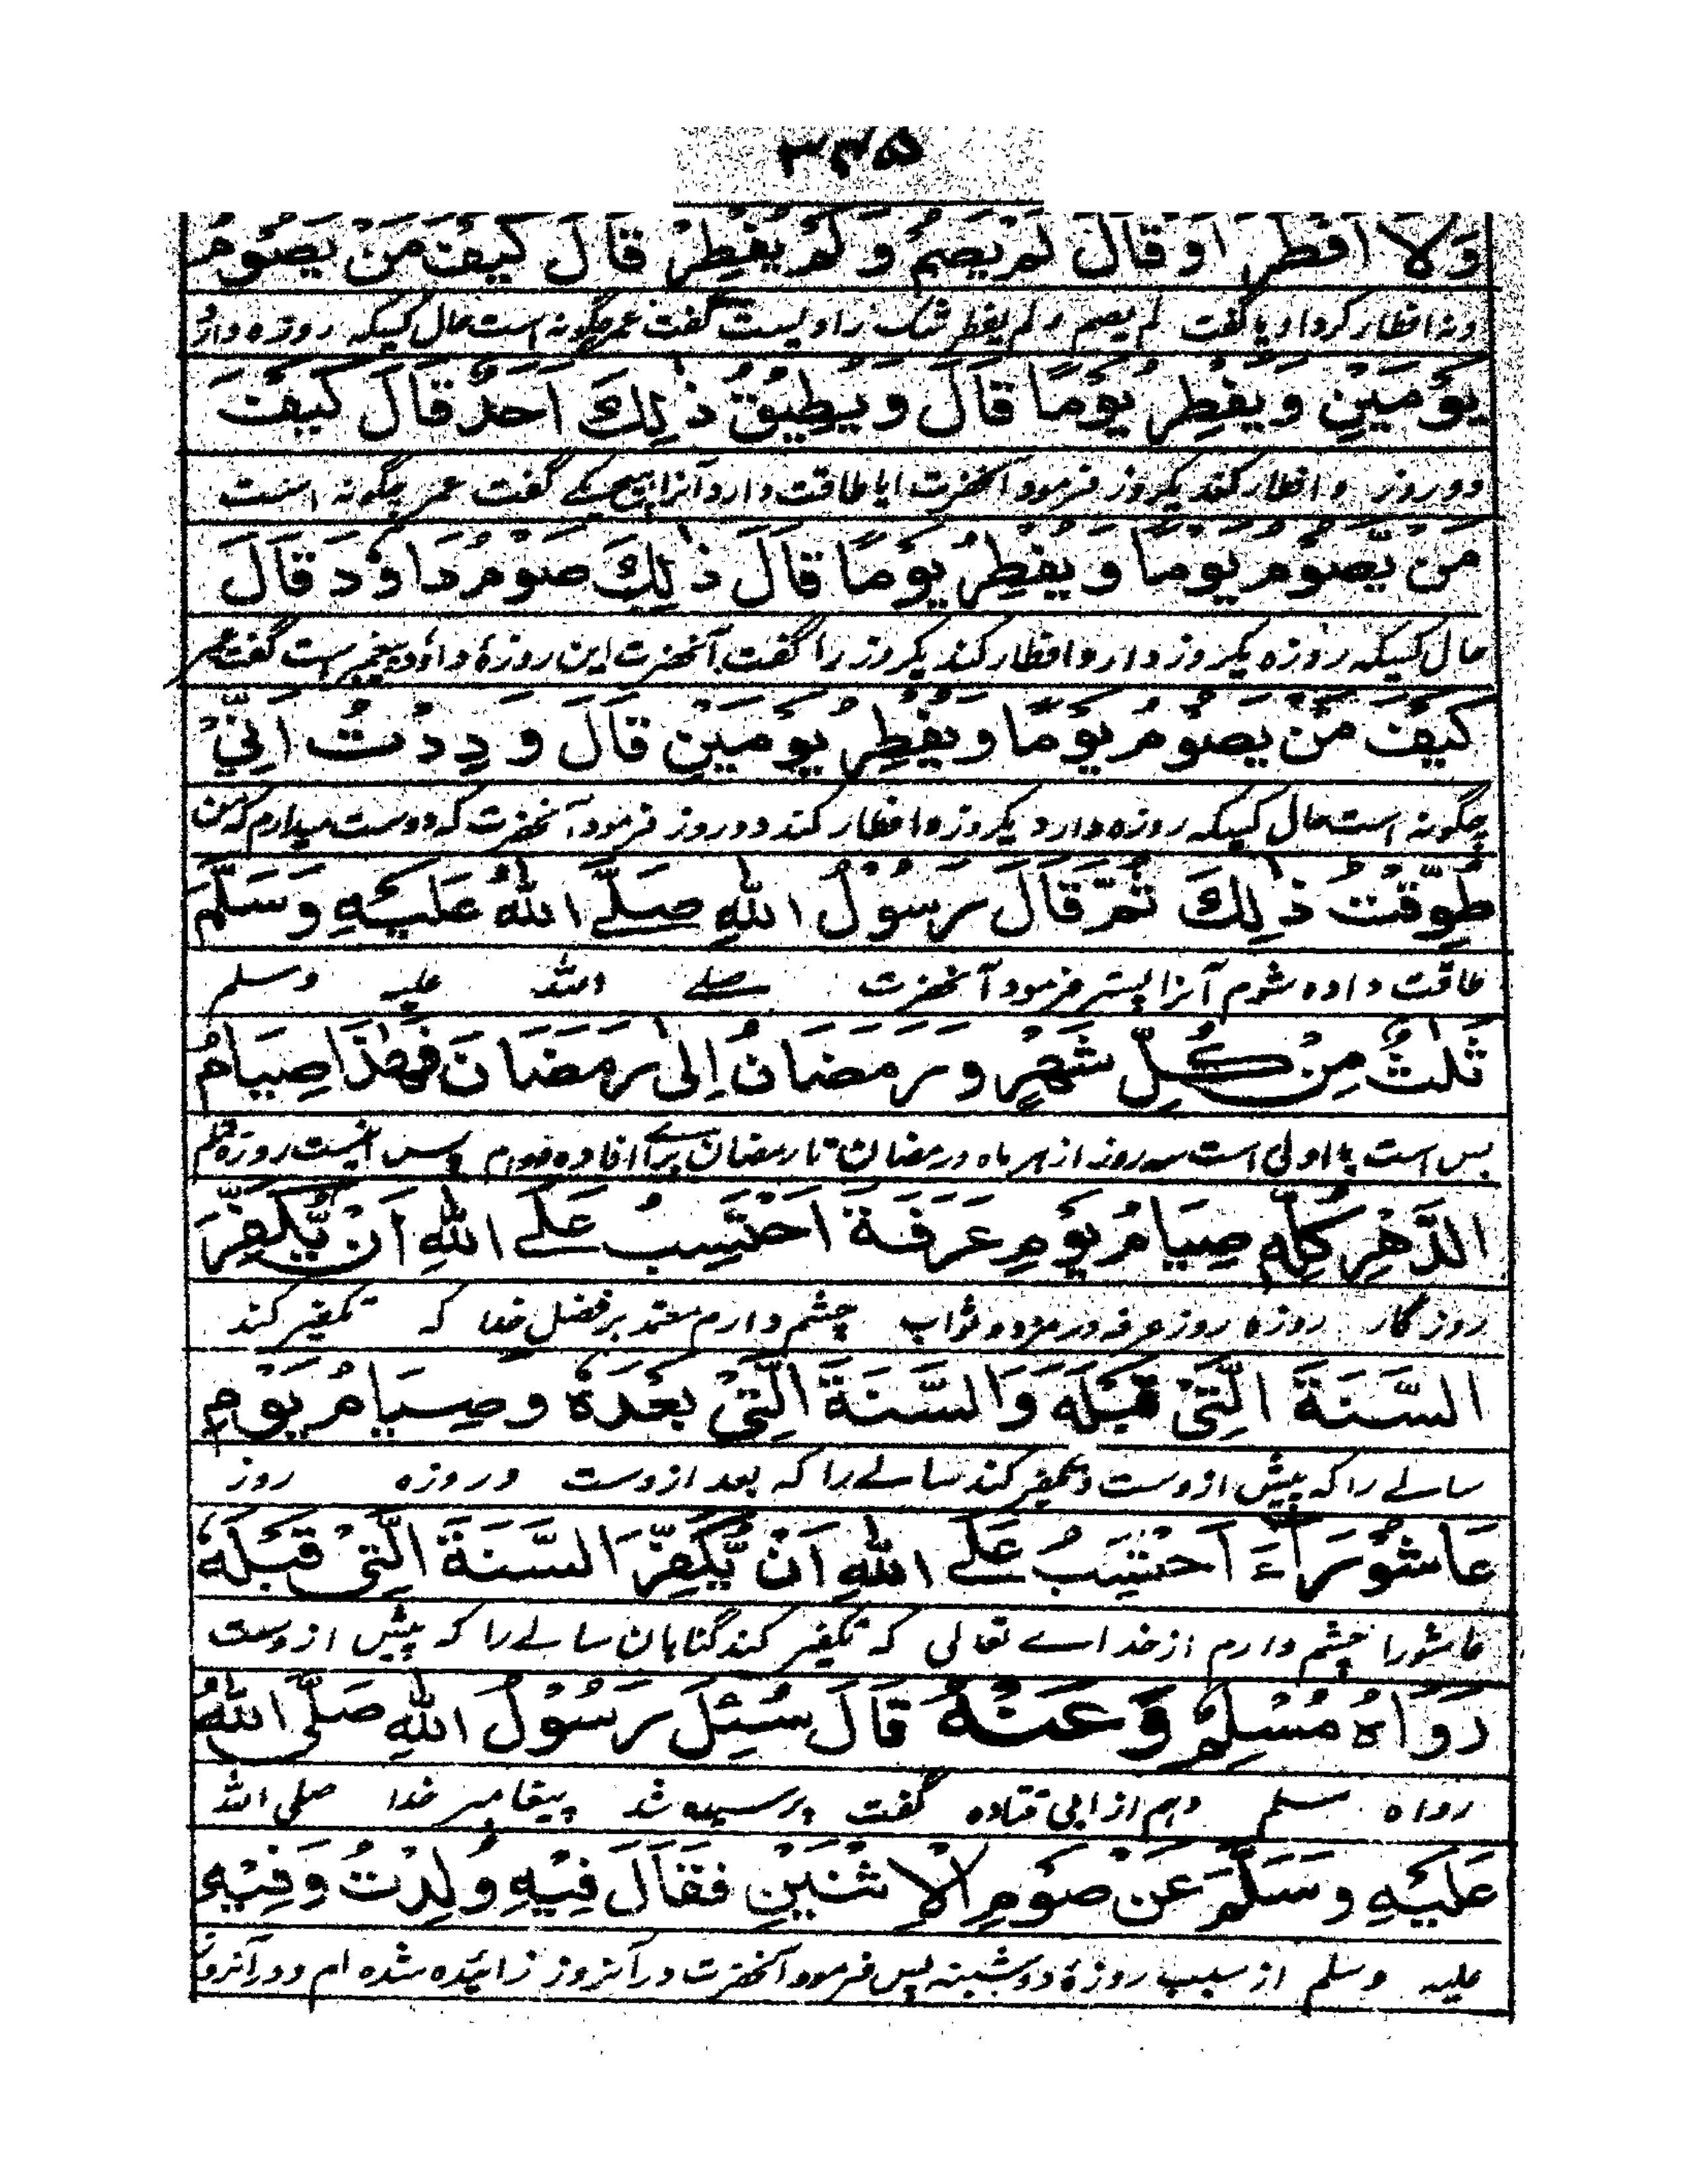 ۳۳۵
وَلَا اَفْطَرَ اَوْ قَالَ لَمْ يَصُمْ وَ لَمْ يُفْطِرْ قَالَ كَيْفَ مَنْ يَصُوْمُ
ونه افطار کرد او یا گفت لم یصم و لم یفطر شک راویست گفت عمر چگونه است حال کسیکه روزه دارد
يَوْمَيْنِ وَيُفْطِرُ يَوْمًا قَالَ وَيُطِيْقُ ذٰلِكَ اَحَدٌ قَالَ كَيْفَ
دو روز و افطار کند یکروز فرمود آنحضرت ایا طاقت دارد آنرا هیچ یکے گفت عمر چگونه است
مَنْ يَّصُوْمُ يَوْمًا وَ يُفْطِرُ يَوْمًا قَالَ ذٰلِكَ صَوْمُ دَاوٗدَ قَالَ
حال کسیکه روزه یکروز دارد و افطار کند یکروز را گفت آنحضرت این روزۀ داؤد پیغمبر است گفت عمر
كَيْفَ مَنْ يَصُوْمُ يَوْمًا وَيُفْطِرُ يَوْمَيْنِ قَالَ وَدِدْتُ اَنِّيْ
چگونه است حال کسیکه روزه دارد یکروز و افطار کند دو روز فرمود آنحضرت که دوست میدارم که من
طُوِّقْتُ ذٰلِكَ ثُمَّ قَالَ رَسُوْلُ اللّٰهِ صَلَّے اللّٰهُ عَلَيْهِ وَسَلَّمَ
طاقت داده شوم آنرا پستر فرمود آنحضرت صلے الله علیه وسلم
ثَلٰثٌ مِنْ كُلِّ شَهْرٍ وَرَمَضَانُ اِلٰى رَمَضَانَ فَهٰذَا صِيَامُ
بس است یا اولی است سه روزه از هر ماه و رمضان تا رمضان براے افاده دوام پس اینست روزۀ
الدَّهْرِ كُلِّهِ صِيَامُ يَوْمِ عَرَفَةَ اَحْتَسِبُ عَلَے اللّٰهِ اَنْ يُّكَفِّرَ
روزگار روزه روز عرفه در مزد و ثواب چشم دارم معتمد بر فضل خدا که تکفیر کند
السَّنَةَ الَّتِيْ قَبْلَهٗ وَالسَّنَةَ الَّتِيْ بَعْدَهٗ وَصِيَامُ يَوْمِ
سالے را که پیش ازوست و تکفیر کند سالے را که بعد ازوست و روزه روز
عَاشُوْرَآءَ اَحْتَسِبُ عَلَے اللّٰهِ اَنْ يُّكَفِّرَ السَّنَةَ الَّتِيْ قَبْلَهٗ
عاشورا چشم دارم از خداے تعالی که تکفیر کند گناهان سالے را که پیش ازوست
رَوَاهُ مُسْلِمٌ وَعَنْهُ قَالَ سُئِلَ رَسُوْلُ اللّٰهِ صَلَّى اللّٰهُ
رواه مسلم وهم از ابی قتاده گفت پرسیده شد پیغامبر خدا صلی الله
عَلَيْهِ وَسَلَّمَ عَنْ صَوْمِ الْاِثْنَيْنِ فَقَالَ فِيْهِ وُلِدْتُ وَفِيْهِ
علیه وسلم از سبب روزۀ دوشنبه پس فرمود آنحضرت در آنروز زائیده شده ام و در آنروز